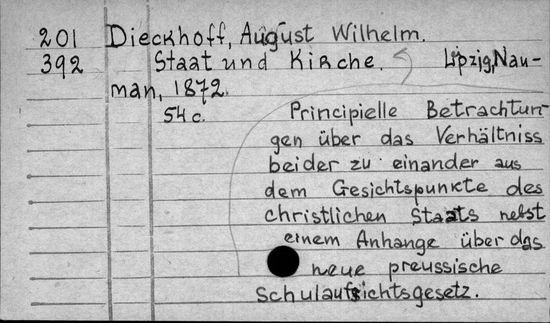 201 Dieckhoff, August Wilhelm.
392 Staat und Kirche. Lipzig, Nau-
man, 1872.
54 c. Principielle Betrachtun-
gen über das Verhältniss
beider zu einander aus
dem Gesichtspunkte des
christlichen Staats nebst
einem Anhange über das
neue preussische
Schulaufsichtsgesetz.